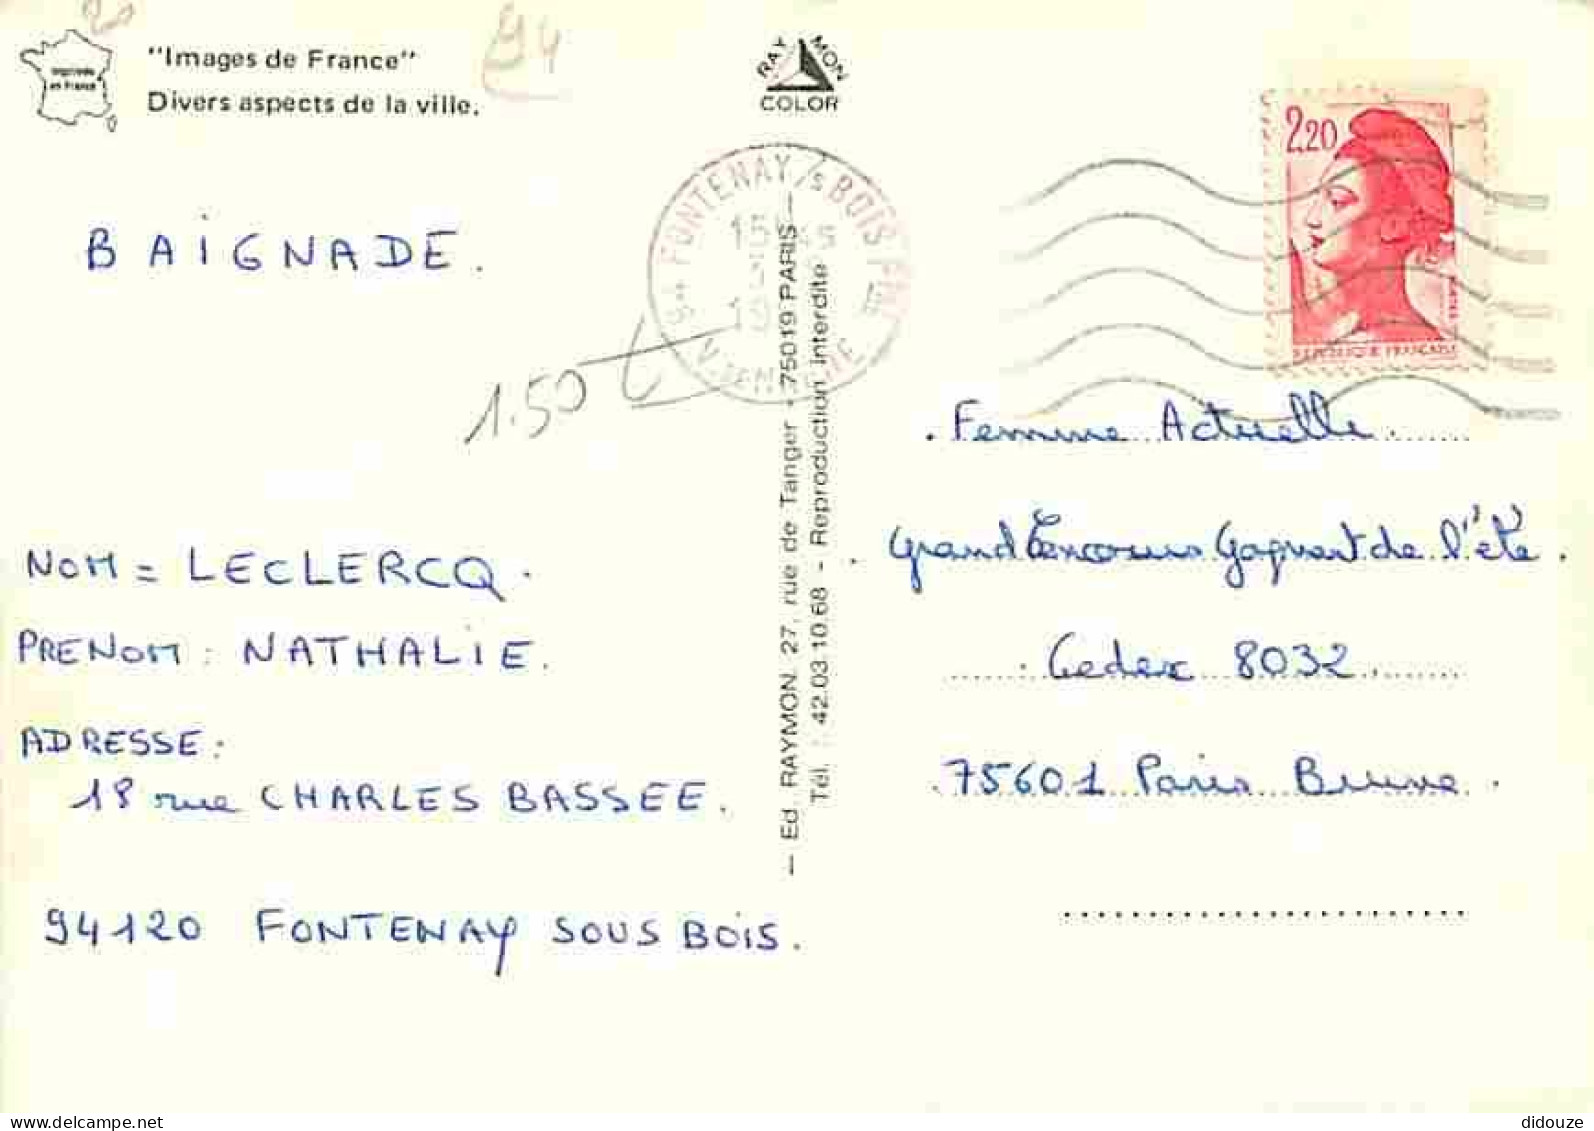 94
"Images de France"
Divers aspects de la ville.
Imprimée
en France
RAY MON
COLOR
2,20
REPUBLIQUE FRANÇAISE
94 FONTENAY/s BOIS
15
BAIGNADE.
1.50 €
Femme Actuelle
Grand Concours Gagnant de l'été.
Cedex 8032
75601 Paris Brune.
NOM = LECLERCQ.
PRENOM: NATHALIE.
ADRESSE:
18 rue CHARLES BASSEE.
94120 FONTENAY SOUS BOIS.
— Ed. RAYMON, 27, rue de Tanger - 75019 PARIS —
Tél. : 42.03.10.68 - Reproduction Interdite
didouze